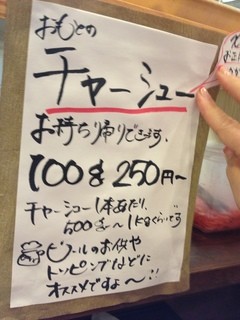 おもとの
チャーシュー
お持ち帰りできます、
100g 250円〜
チャーシュー1本あたり、
500g〜1kgくらいです
ビールのお供や
トッピングなどに
オススメですよ〜